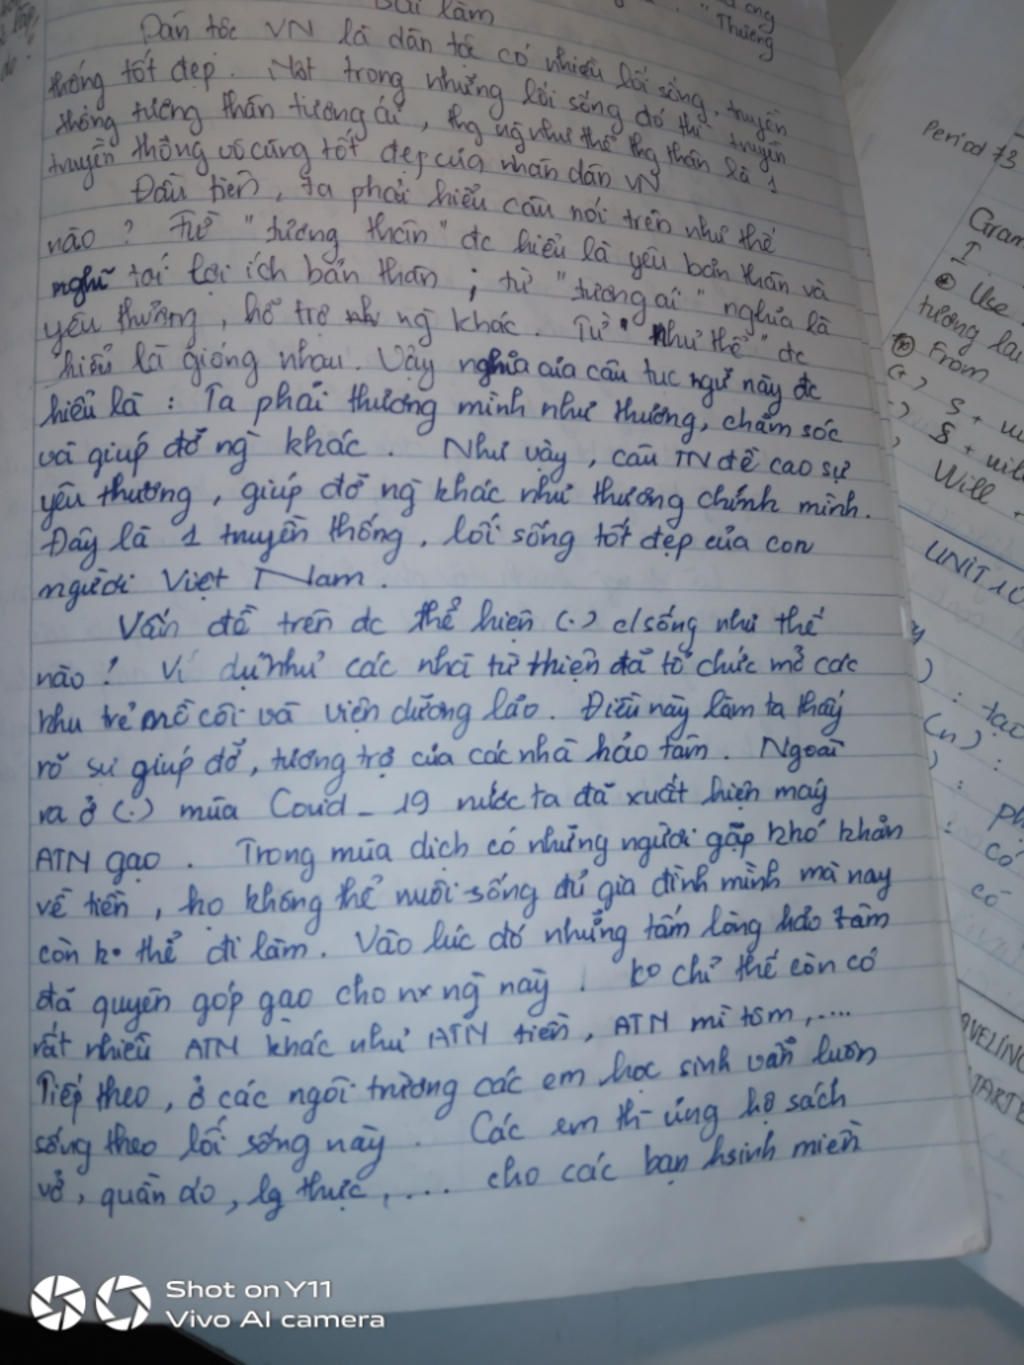 Bài làm
ong
" Thương
Dân tộc VN là dân tộc có nhiều lối sống, truyền
thống tốt đẹp. Một trong những lối sống đó thì truyền
thống tương thân tương ái, thg ng như thể thg thân là 1
truyền thống vô cùng tốt đẹp của nhân dân VN
Đầu tiên, ta phải hiểu câu nói trên như thế
nào ? Từ " tương thân " đc hiểu là yêu bản thân và
nghĩ tới lợi ích bản thân ; từ " tương ái " nghĩa là
yêu thương, hỗ trợ ng khác. Từ " như thể " đc
hiểu là giống nhau. Vậy nghĩa của câu tục ngữ này đc
hiểu là : Ta phải thương mình như thương, chăm sóc
và giúp đỡ ng khác. Như vậy, câu TN đề cao sự
yêu thương, giúp đỡ ng khác như thương chính mình.
Đây là 1 truyền thống, lối sống tốt đẹp của con
người Việt Nam.
Vấn đề trên đc thể hiện (.) c/sống như thế
nào ? Ví dụ như các nhà từ thiện đã tổ chức mở các
khu trẻ mồ côi và viện dưỡng lão. Điều này làm ta thấy
rõ sự giúp đỡ, tương trợ của các nhà hảo tâm. Ngoài
ra ở (.) mùa Covid - 19 nước ta đã xuất hiện máy
ATN gạo. Trong mùa dịch có những người gặp khó khăn
về tiền, họ không thể nuôi sống đủ gia đình mình mà nay
còn ko thể đi làm. Vào lúc đó những tấm lòng hảo tâm
đã quyên góp gạo cho nx ng này. ko chỉ thế còn có
rất nhiều ATN khác như ATN tiền, ATN mì tôm,....
Tiếp theo, ở các ngôi trường các em học sinh vẫn luôn
sống theo lối sống này. Các em th- ủng hộ sách
vở, quần áo, lg thực,.... cho các bạn hsinh miền
Period 73
Gram
I
Use
tương lai
From
S + wi
S + will
Will +
UNIT 10
: tạo
(n) :
: ph
có
có
AVELING
START
Shot on Y11
Vivo AI camera